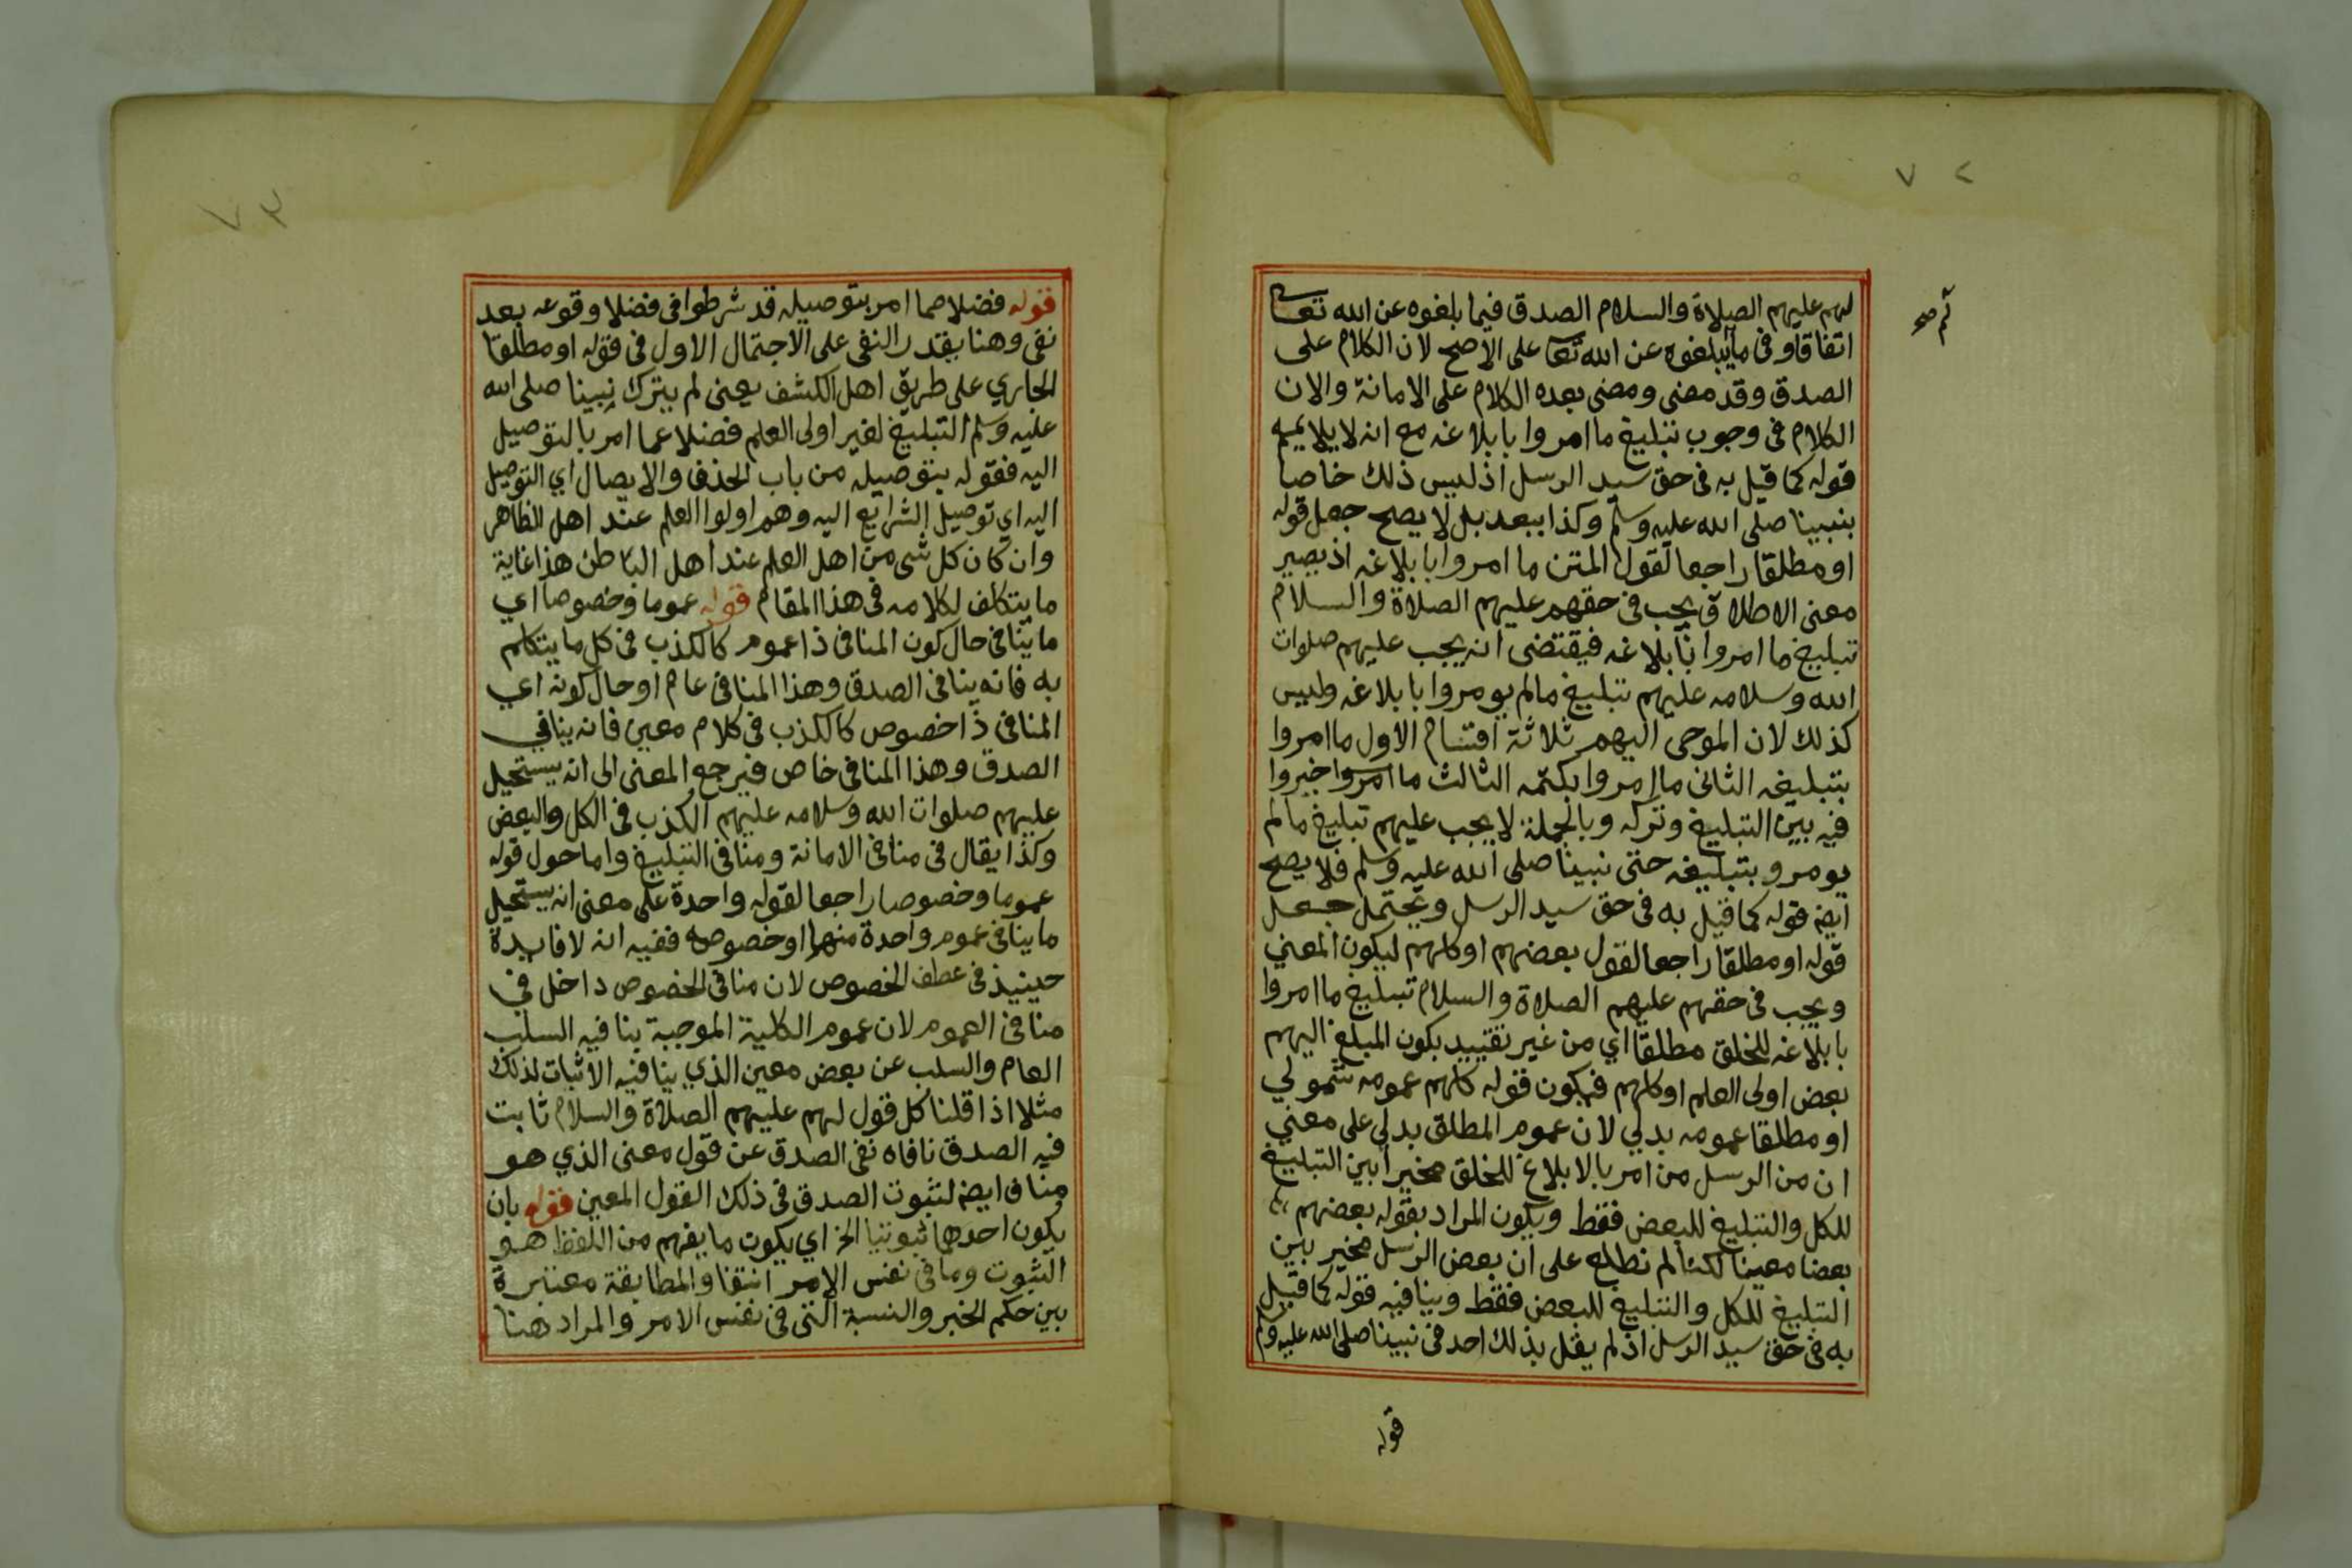 ٧٢
لهم عليهم الصلاة والسلام الصدق فيما بلغوه عن الله تعا
اتفاقا وفى ما يبلغوه عن الله تعا على الاصح لان الكلام على
الصدق وقد مضى ومضى بعده الكلام على الامانة والان
الكلام فى وجوب تبليغ ما امروا بابلاغه مع انه لا يلايمه
قوله كما قيل به فى حق سيد الرسل اذ ليس ذلك خاصا
بنبينا صلى الله عليه وسلم وكذا يبعد بل لا يصح جعل قوله
او مطلقا راجعا لقول المتن ما امروا بابلاغه اذ يصير
معنى الاطلاق يجب فى حقهم عليهم الصلاة والسلام
تبليغ ما امروا بابلاغه فيقتضى انه يجب عليهم صلوات
الله وسلامه عليهم تبليغ مالم يومروا بابلاغه وليس
كذلك لان الموحى اليهم ثلاثة اقسام الاول ما امروا
بتبليغه الثانى ما امروا بكتمه الثالث ما امروا خيروا
فيه بين التبليغ وتركه وبالجملة لا يجب عليهم تبليغ مالم
يومرو بتبليغه حتى نبينا صلى الله عليه وسلم فلا يصح
ايضه قوله كما قيل به فى حق سيد الرسل ويحتمل جعل
قوله او مطلقا راجعا لقول بعضهم او كلهم ليكون المعني
ويجب فى حقهم عليهم الصلاة والسلام تبليغ ما امروا
بابلاغه للخلق مطلقا اي من غير تقييد بكون المبلغ اليهم
بعض اولى العلم او كلهم فيكون قوله كلهم عمومه شمولي
او مطلقا عمومه بدلي لان عموم المطلق بدلى على معني
ان من الرسل من امر بالابلاغ للخلق مخيرا بين التبليغ
للكل والتبليغ للبعض فقط ويكون المراد بقوله بعضهم
بعضا معينا لكنا لم نطلع على ان بعض الرسل مخير بين
التبليغ للكل والتبليغ للبعض فقط وينافيه قوله كما قيل
به فى حق سيد الرسل اذ لم يقل بذلك احد فى نبينا صلى الله عليه وسلم
قوله
٧٣
قوله فضلا عما امر بتوصيله قد شرطوا فى فضلا وقوعه بعد
نفى وهنا يقدر النفى على الاحتمال الاول فى قوله او مطلقا
الجاري على طريق اهل الكشف يعنى لم يترك نبينا صلى الله
عليه وسلم التبليغ لغير اولى العلم فضلا عما امر بالتوصيل
اليه فقوله بتوصيله من باب الحذف والايصال اي التوصيل
اليه اي توصيل الشرايع اليه وهم اولوا العلم عند اهل الظاهر
وان كان كل شى من اهل العلم عند اهل الباطن هذا غاية
ما يتكلف لكلامه فى هذا المقام قوله عموما وخصوصا اي
ما ينافى حال كون المنافى ذا عموم كالكذب فى كل ما يتكلم
به فانه ينافى الصدق وهذا المنافى عام او حال كونه اي
المنافى ذا خصوص كالكذب فى كلام معين فانه ينافي
الصدق وهذا المنافى خاص فيرجع المعنى الى انه يستحيل
عليهم صلوات الله وسلامه عليهم الكذب فى الكل والبعض
وكذا يقال فى منافى الامانة ومنافى التبليغ واما حول قوله
عموما وخصوصا راجعا لقوله واحدة على معنى انه يستحيل
ما ينافى عموم واحدة منهما او خصوصه ففيه انه لا فايدة
حينيذ فى عطف الخصوص لان منافى الخصوص داخل في
منافى العموم لان عموم الكلية الموجبة ينافيه السلب
العام والسلب عن بعض معين الذي ينافيه الاثبات لذلك
مثلا اذا قلنا كل قول لهم عليهم الصلاة والسلام ثابت
فيه الصدق نافاه نفى الصدق عن قول معنى الذي هو
مناف ايضه لثبوت الصدق فى ذلك القول المعين قوله بان
يكون احدهما ثبوتيا الخ اي يكون ما يفهم من اللفظ هو
الثبوت وما فى نفس الامر انتفا والمطابقة معتبرة
بين حكم الخبر والنسبة التى فى نفس الامر والمراد هنا